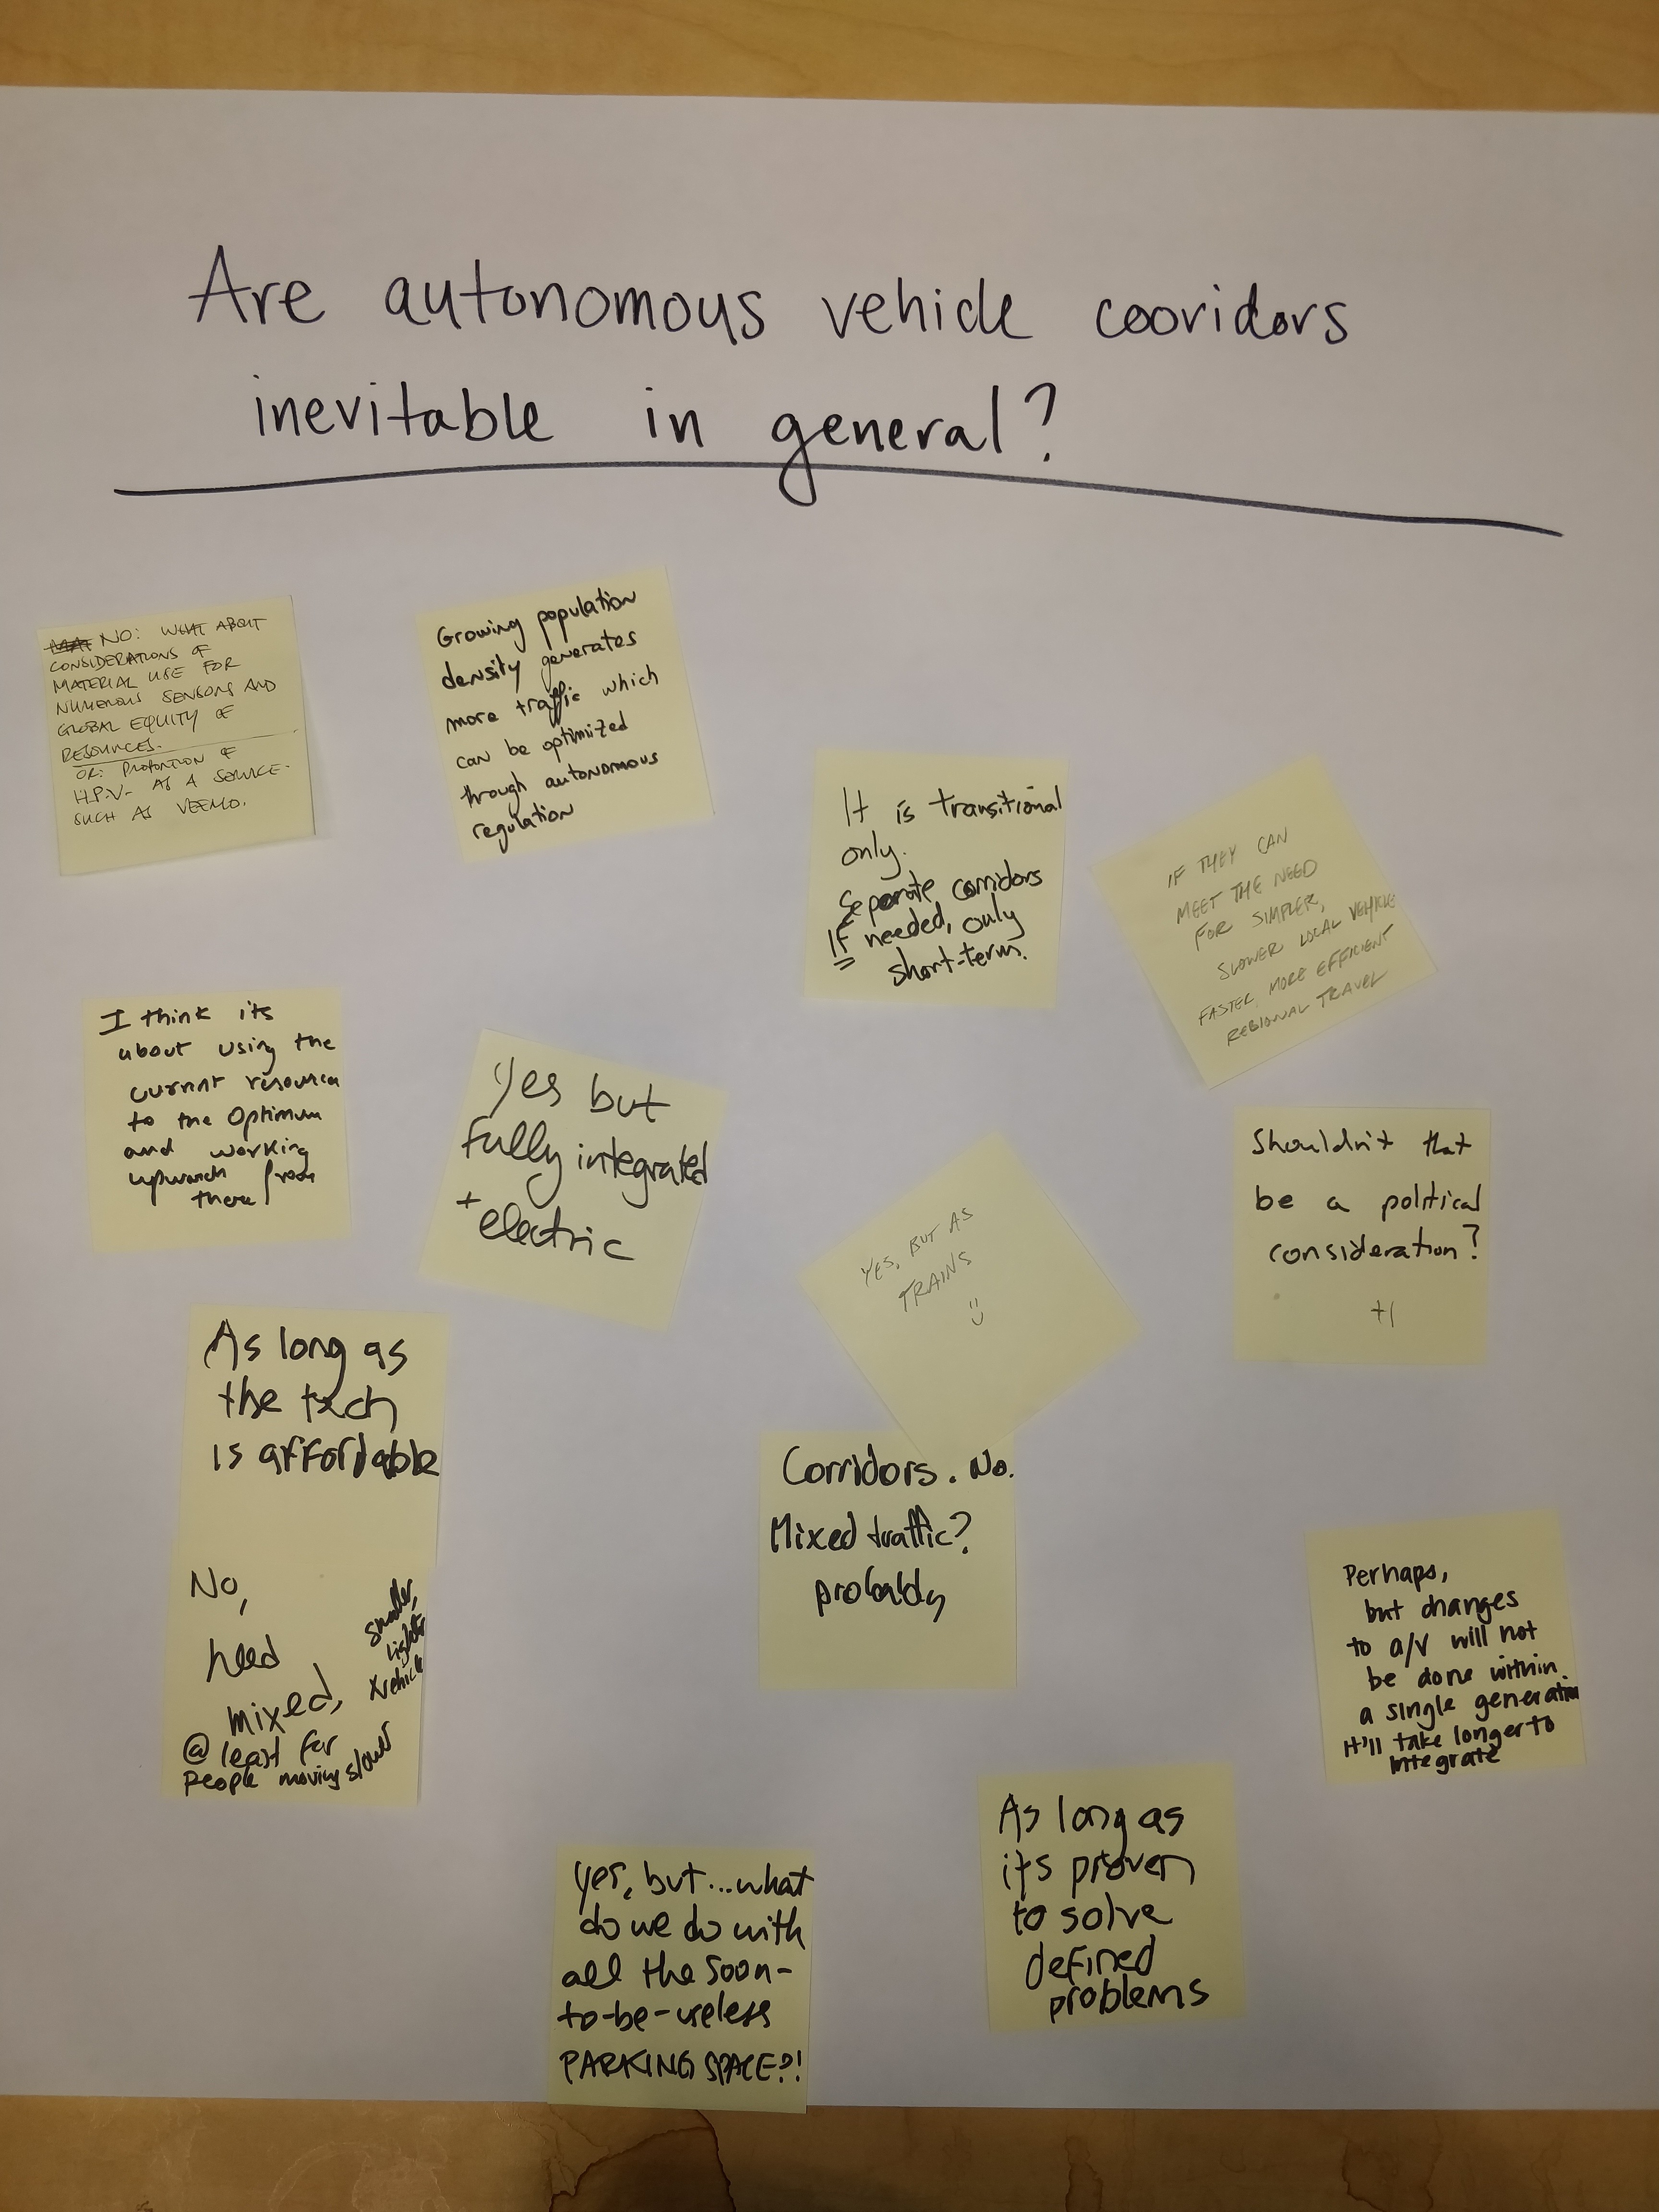 Are autonomous vehicle cooridors
inevitable in general?
NO: WHAT ABOUT
CONSIDERATIONS OF
MATERIAL USE FOR
NUMEROUS SENSORS AND
GLOBAL EQUITY OF
RESOURCES.
OR: PROPORTION OF
H.P.V- AS A SERVICE-
SUCH AS VEEMO.
Growing population
density generates
more traffic which
can be optimized
through autonomous
regulation
It is transitional
only.
Separate corridors
IF needed, only
short-term.
IF THEY CAN
MEET THE NEED
FOR SIMPLER,
SLOWER LOCAL VEHICLE
FASTER, MORE EFFICIENT
REGIONAL TRAVEL
I think its
about using the
current resources
to the Optimum
and working
upwards from
there
Yes but
fully integrated
+ electric
YES, BUT AS
TRAINS
Shouldn't that
be a political
consideration?
+1
As long as
the tech
is affordable
Corridors. No.
Mixed traffic?
probably
No,
need
mixed,
@ least for
people moving slower
smaller,
lighter
vehicle
Perhaps,
but changes
to a/v will not
be done within
a single generation
It'll take longer to
integrate
As long as
its proven
to solve
defined
problems
yes, but...what
do we do with
all the soon-
to-be-useless
PARKING SPACE?!